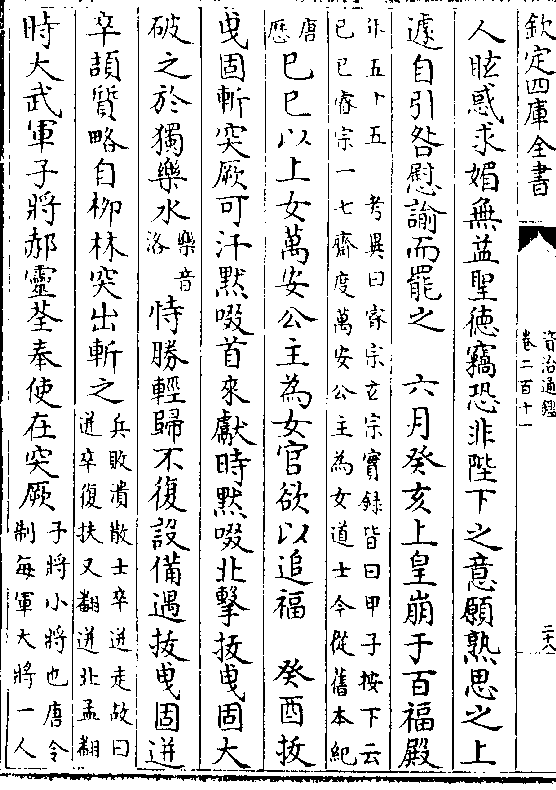 欽定四庫全書
資治通鑑
卷二百十一
二十八
人眩惑求媚無益聖德竊恐非陛下之意願熟思之上
遽自引咎慰諭而罷之 六月癸亥上皇崩于百福殿
年五十五 考異曰睿宗玄宗實錄皆曰甲子按下云
己巳睿宗一七齋度萬安公主為女道士今從舊本紀
唐歷
己巳以上女萬安公主為女官欲以追福 癸酉拔
曳固斬突厥可汗默啜首來獻時默啜北擊拔曳固大
破之於獨樂水
樂音洛
恃勝輕歸不復設備遇拔曳固迸
卒頡質略自柳林突出斬之
兵敗潰散士卒迸走故曰
迸卒復扶又翻迸北孟翻
時大武軍子將郝靈荃奉使在突厥
子將小將也唐令
制每軍大將一人